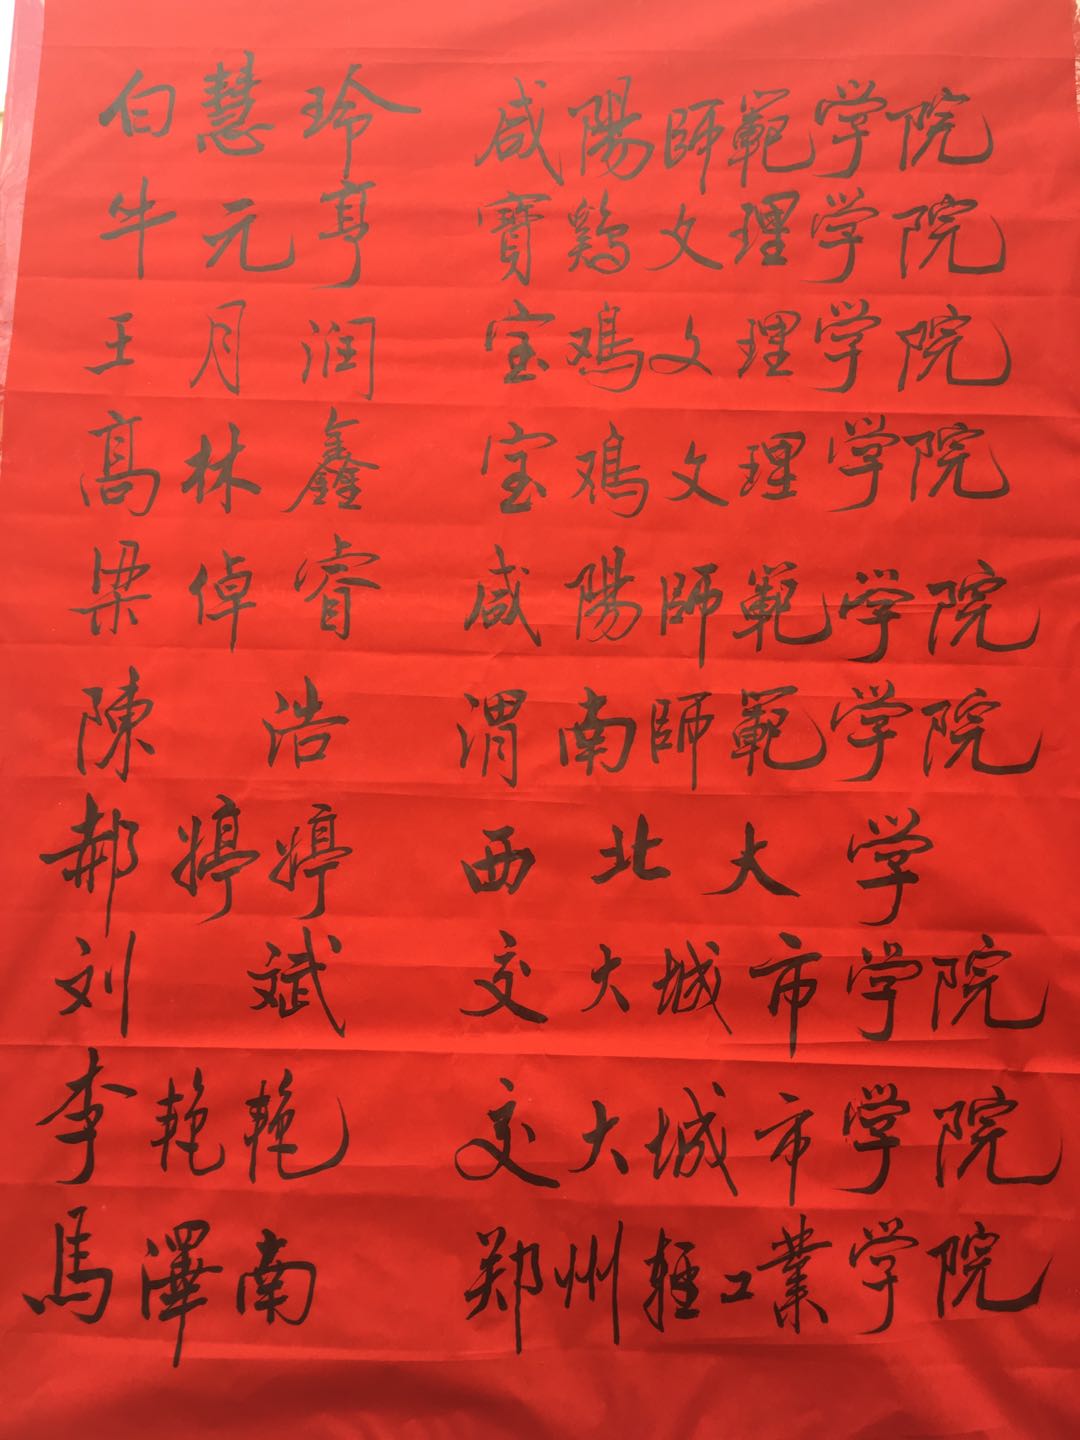 白慧玲 咸陽師範学院
牛元亨 寶鷄文理学院
王月润 宝鸡文理学院
髙林鑫 宝鸡文理学院
梁倬睿 咸陽師範学院
陳浩 渭南師範学院
郝婷婷 西北大学
刘斌 交大城市学院
李艳艳 交大城市学院
馬澤南 郑州輕工業学院